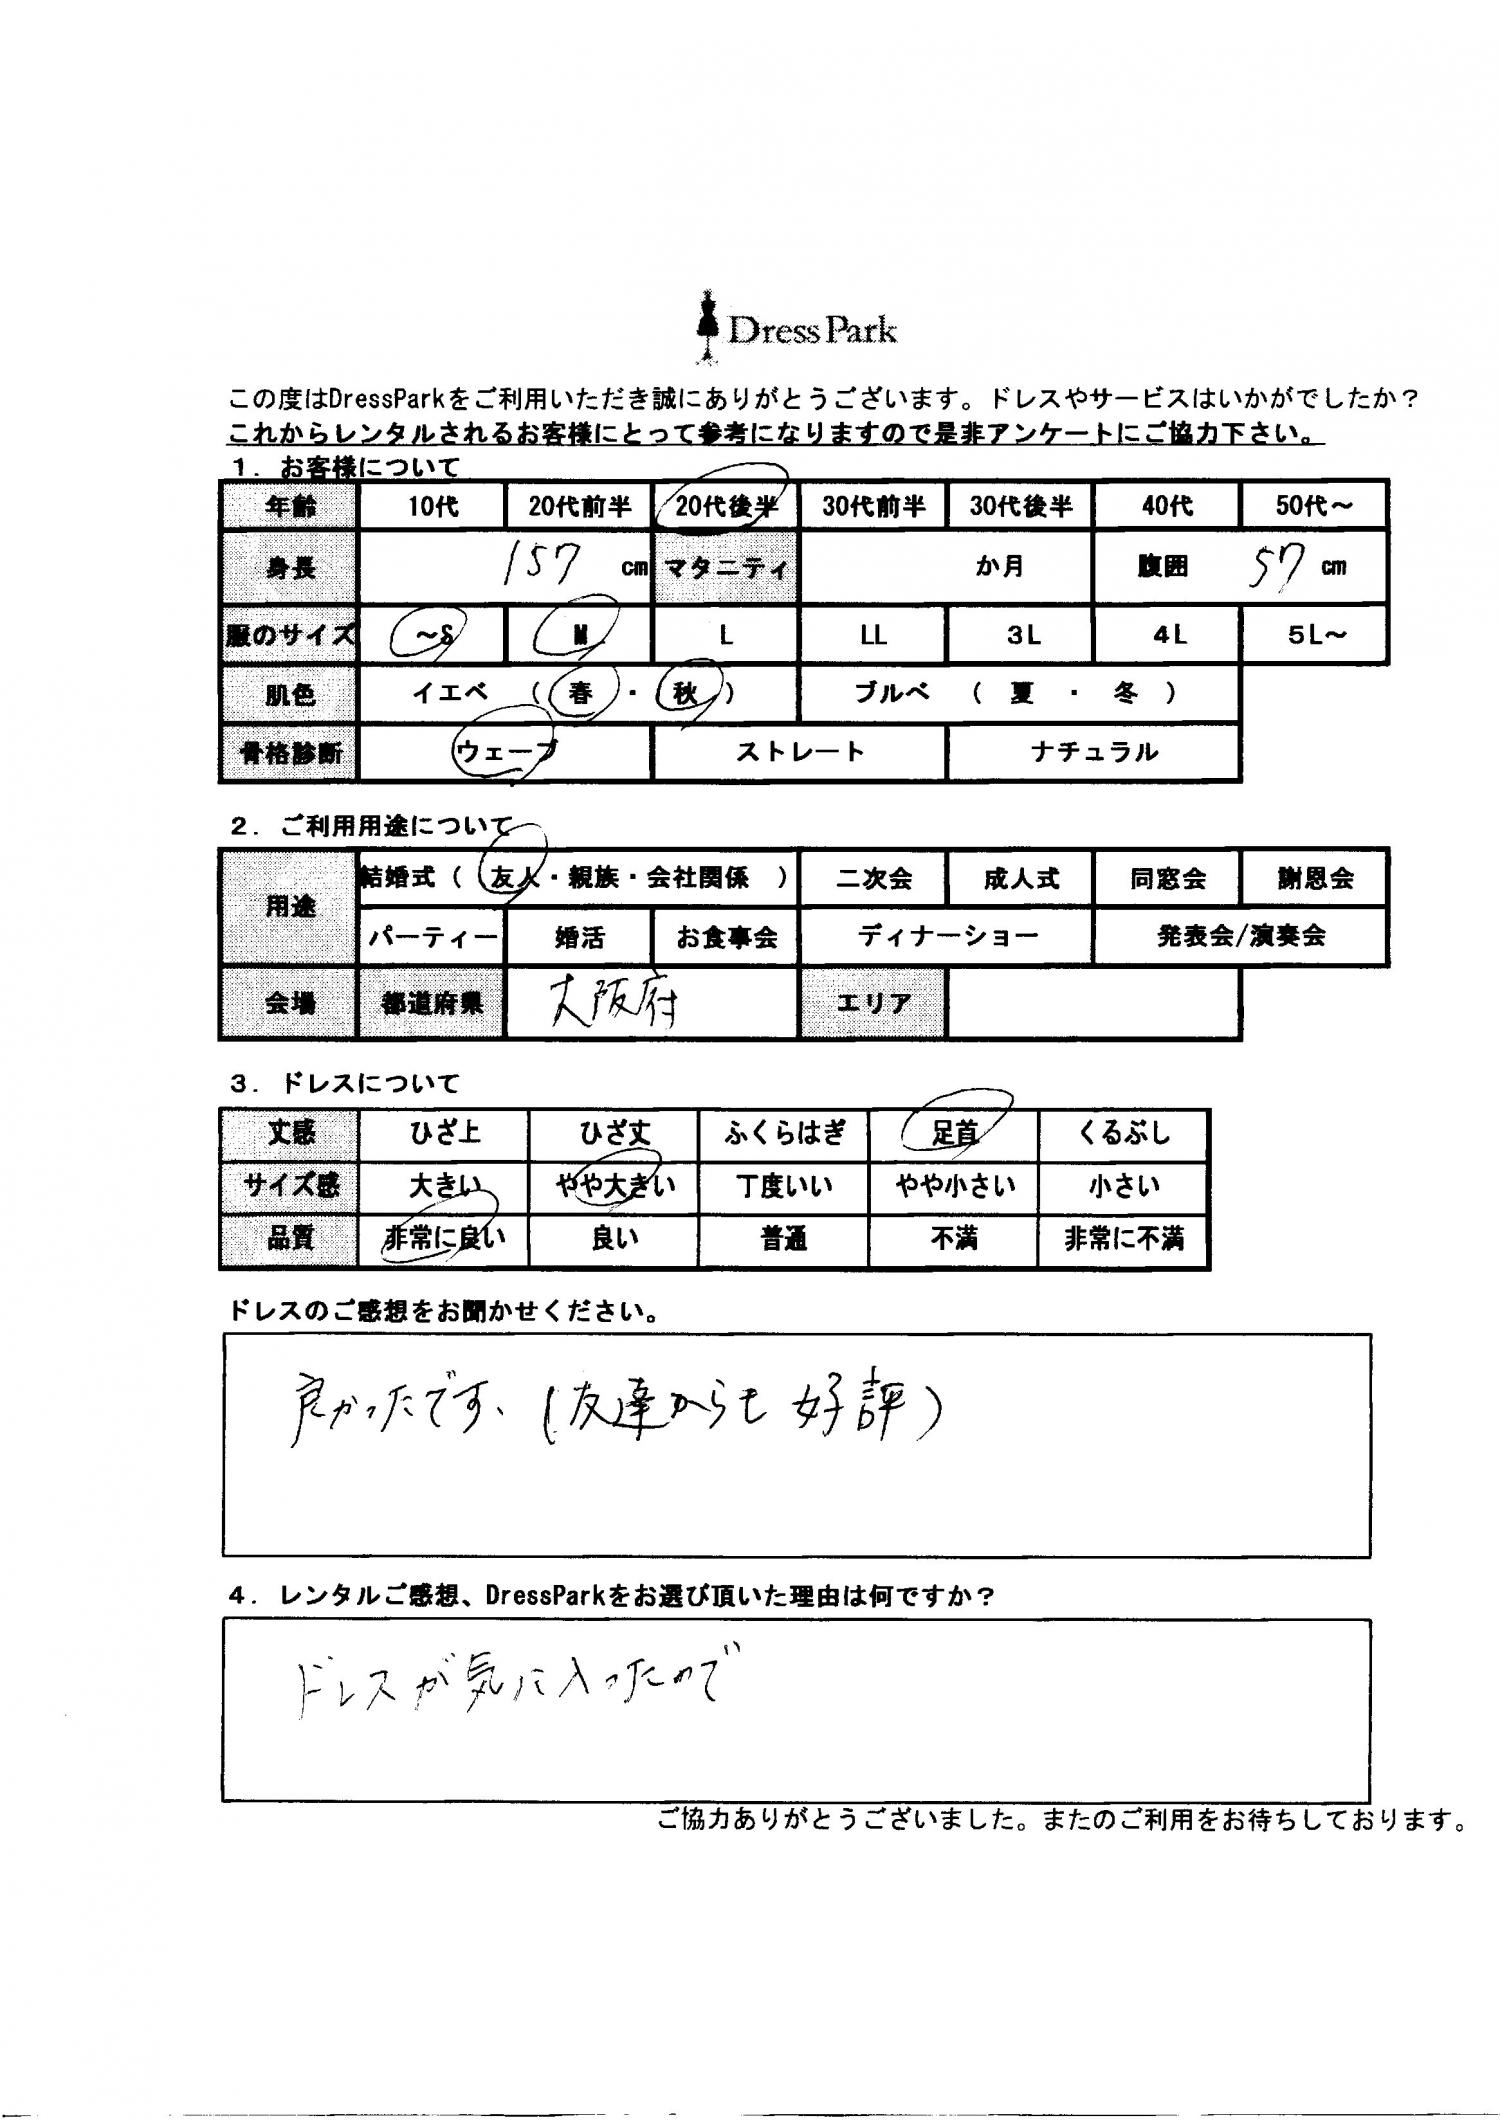 Dress Park
この度はDressParkをご利用いただき誠にありがとうございます。ドレスやサービスはいかがでしたか？
これからレンタルされるお客様にとって参考になりますので是非アンケートにご協力下さい。
１．お客様について
年齢 10代 20代前半 20代後半 30代前半 30代後半 40代 50代～
身長 157 cm マタニティ か月 腹囲 57 cm
服のサイズ ～S M L LL 3L 4L 5L～
肌色 イエベ （ 春 ・ 秋 ） ブルベ （ 夏 ・ 冬 ）
骨格診断 ウェーブ ストレート ナチュラル
２．ご利用用途について
用途 結婚式（ 友人・親族・会社関係 ） 二次会 成人式 同窓会 謝恩会
パーティー 婚活 お食事会 ディナーショー 発表会/演奏会
会場 都道府県 大阪府 エリア
３．ドレスについて
丈感 ひざ上 ひざ丈 ふくらはぎ 足首 くるぶし
サイズ感 大きい やや大きい 丁度いい やや小さい 小さい
品質 非常に良い 良い 普通 不満 非常に不満
ドレスのご感想をお聞かせください。
良かったです、（友達からも好評）
４．レンタルご感想、DressParkをお選び頂いた理由は何ですか？
ドレスが気に入ったので
ご協力ありがとうございました。またのご利用をお待ちしております。